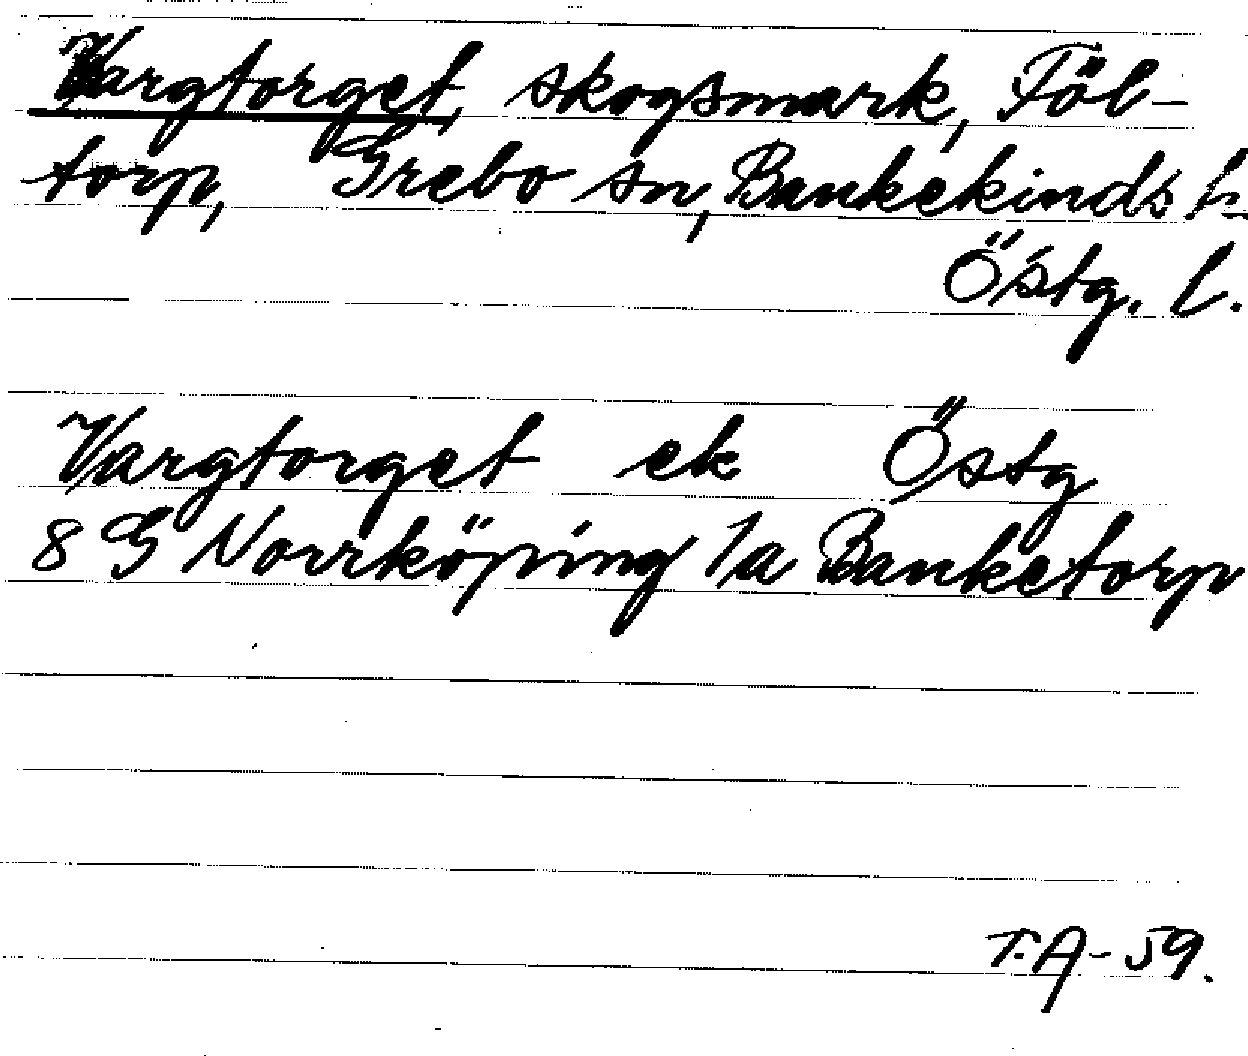 Vargtorget, skogsmark, Föl-
torp, Grebo sn, Bankekinds h
Östg. l.
Vargtorget ek Östg
8 G Norrköping 1a Banketorp
T.A-59.